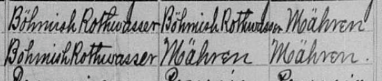 Böhmish Rothwasser Böhmish Rothwasser Mähren
Böhmish Rothwasser Mähren Mähren.